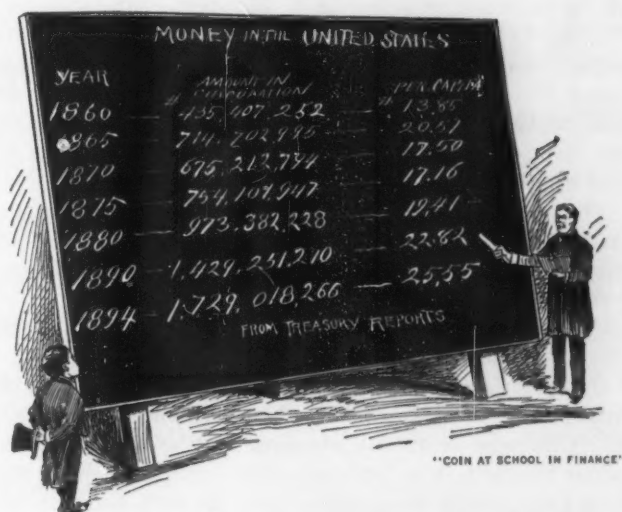 MONEY IN THE UNITED STATES
YEAR AMOUNT IN CIRCULATION PER CAPITA
1860 — $435,407,252 — $13.85
1865 — 714,702,995 — 20.51
1870 — 675,212,794 — 17.50
1875 — 754,101,947 — 17.16
1880 — 973,382,228 — 19.41
1890 — 1,429,251,270 — 22.82
1894 — 1,729,018,266 — 25.55
FROM TREASURY REPORTS
"COIN AT SCHOOL IN FINANCE"